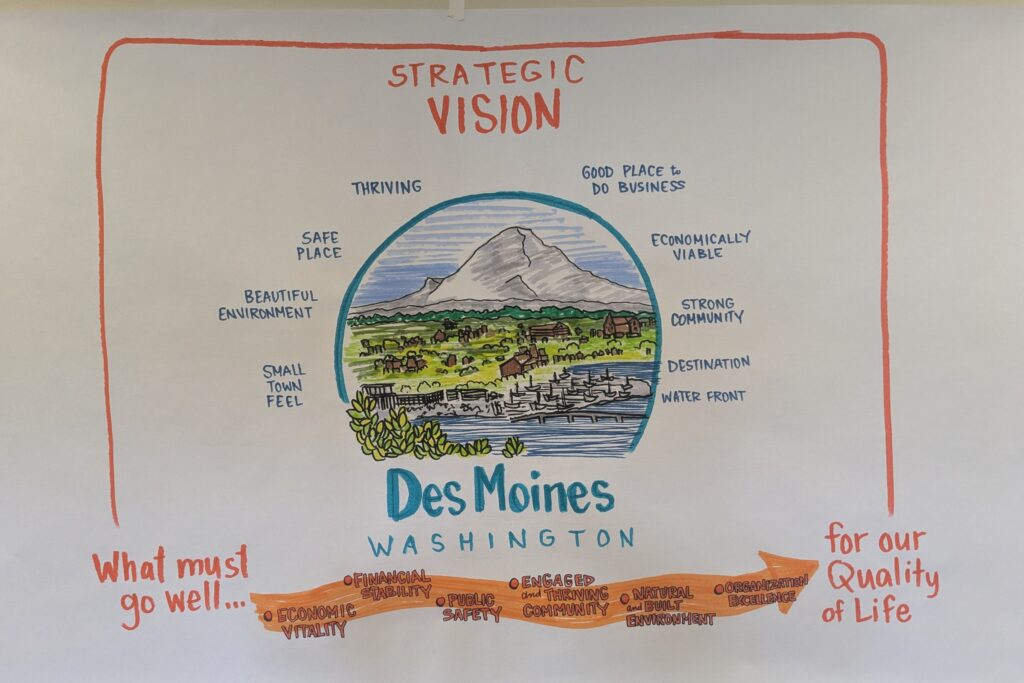 STRATEGIC
VISION
THRIVING
GOOD PLACE to
DO BUSINESS
SAFE
PLACE
ECONOMICALLY
VIABLE
BEAUTIFUL
ENVIRONMENT
STRONG
COMMUNITY
SMALL
TOWN
FEEL
DESTINATION
WATER FRONT
Des Moines
WASHINGTON
What must
go well...
• ECONOMIC
VITALITY
• FINANCIAL
STABILITY
• PUBLIC
SAFETY
• ENGAGED
and THRIVING
COMMUNITY
• NATURAL
and BUILT
ENVIRONMENT
• ORGANIZATION
EXCELLENCE
for our
Quality
of Life